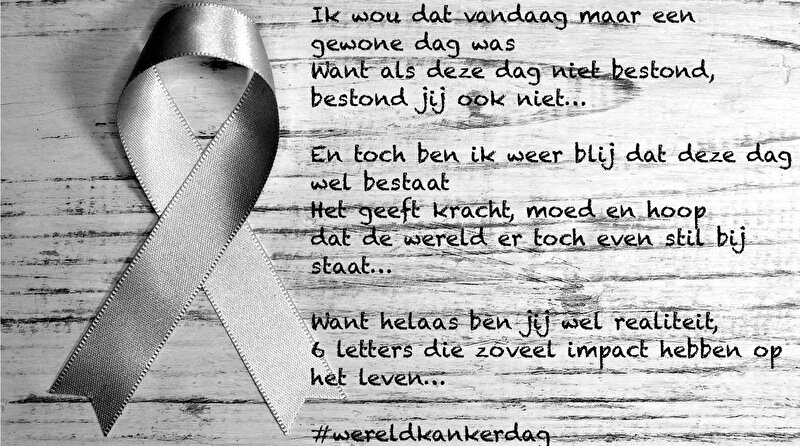 Ik wou dat vandaag maar een
gewone dag was
Want als deze dag niet bestond,
bestond jij ook niet...
En toch ben ik weer blij dat deze dag
wel bestaat
Het geeft kracht, moed en hoop
dat de wereld er toch even stil bij
staat...
Want helaas ben jij wel realiteit,
6 letters die zoveel impact hebben op
het leven...
#wereldkankerdag